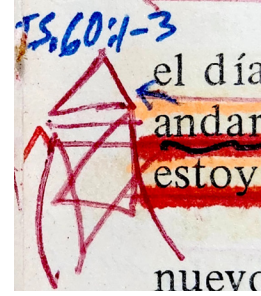 IS,60:1-3
el día
andar
estoy
nuevo